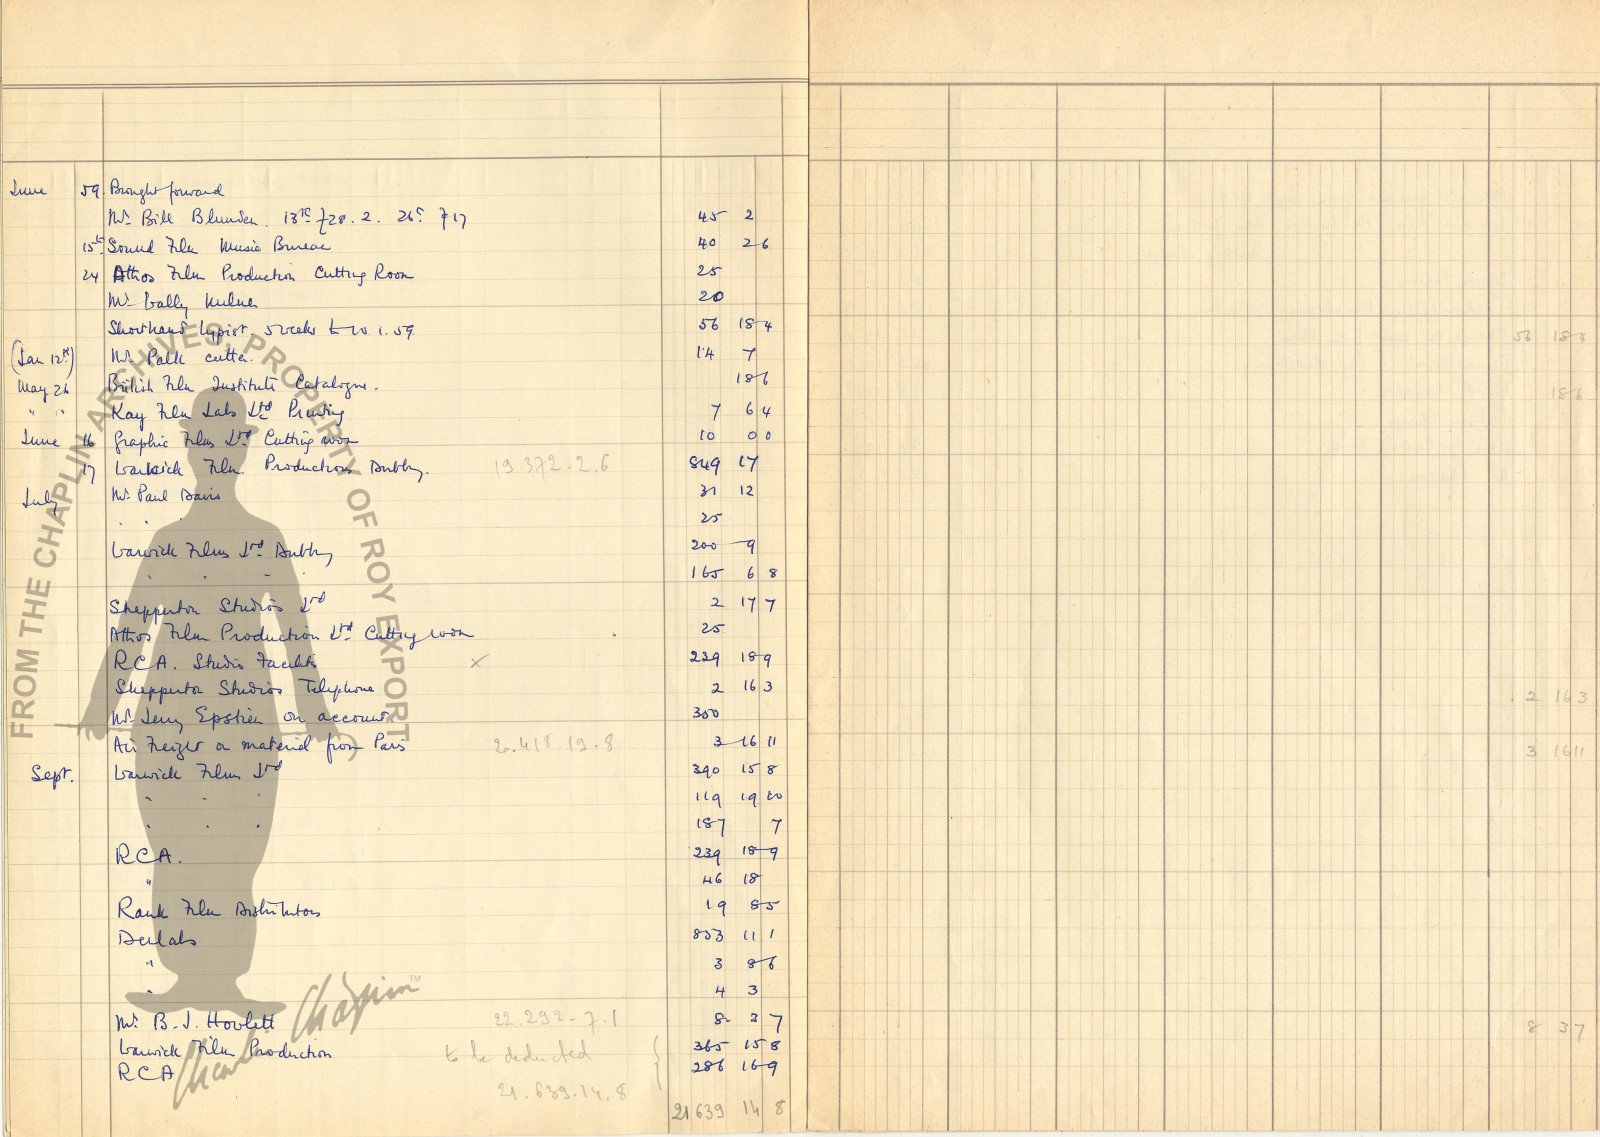 June 59. Brought forward
Mr Bill Blunden. 13th £28.2. 26th £17 45 2
15th Sound Film Music Bureau 40 2 6
24 Athos Film Production Cutting Room 25
Mr Wally 20
Shorthand typist, 5 weeks to 10.1.59. 56 18 4
(Jan 12th) Mr Palk cutter. 14 7
May 26 British Film Institute Catalogue. 18 6
" " Kay Film Labs Ltd Printing 7 6 4
June 16 Graphic Films Ltd Cutting room 10 0 0
17 Warwick Film Productions Dubbing. 19 372.2.6 849 17
July Mr Paul Davis 31 12
" " " 25
Warwick Films Ltd Dubbing 200 9
" " " " 165 6 8
Shepperton Studios Ltd 2 17 7
Athos Film Production Ltd Cutting room 25
RCA. Studio Facilities x 239 18 9
Shepperton Studios Telephone 2 16 3
Mr Jerry Epstien on account 300
Air Freight on material from Paris 20.418.19.8 3 16 11
Sept. Warwick Films Ltd 390 15 8
" " " 119 19 10
" " " 187 7
RCA. 239 18 9
" 46 18
Rank Film Distributors 19 8 5
Denlabs 853 11 1
" 3 8 6
" 4 3
Mr B.J. Howlett 22.292-7.1 8 3 7
Warwick Film Production to be deducted { 365 15 8
RCA 286 16 9
21.639.14.8
21 639 14 8
56 18 4
18 6
2 16 3
3 16 11
8 3 7
FROM THE CHAPLIN ARCHIVES, PROPERTY OF ROY EXPORT
Charlie Chaplin™